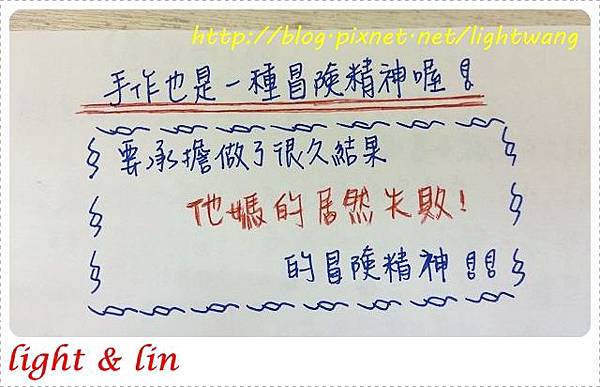 http://blog.pixnet.net/lightwang
手作也是一種冒険精神喔!
要承擔做了很久結果
他媽的居然失敗!
的冒険精神!!
light & lin